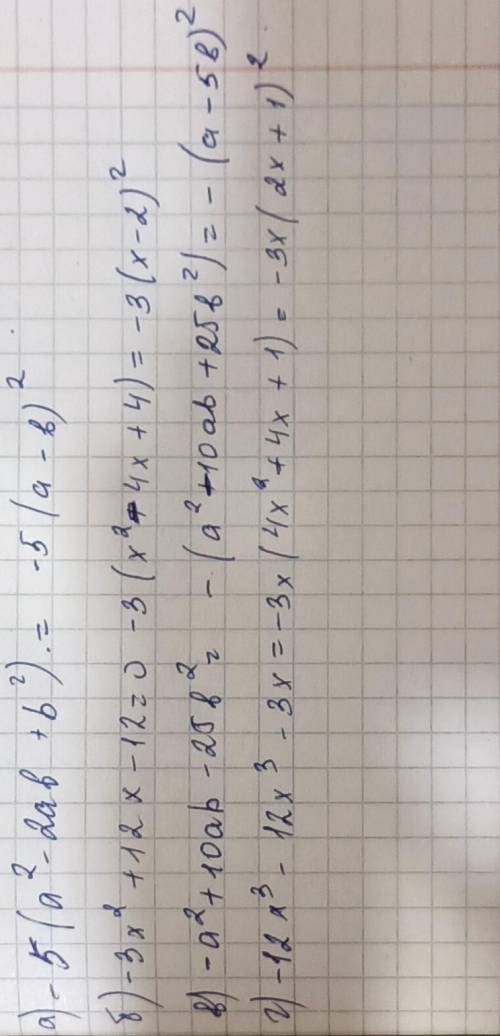 а) -5(a² - 2ab + b²). = -5(a - b)²
б) -3x² + 12x - 12 = 0 -3(x² - 4x + 4) = -3(x - 2)²
в) -a² + 10ab - 25b² = -(a² - 10ab + 25b²) = -(a - 5b)²
г) -12x³ - 12x³ - 3x = -3x(4x² + 4x + 1) = -3x(2x + 1)².